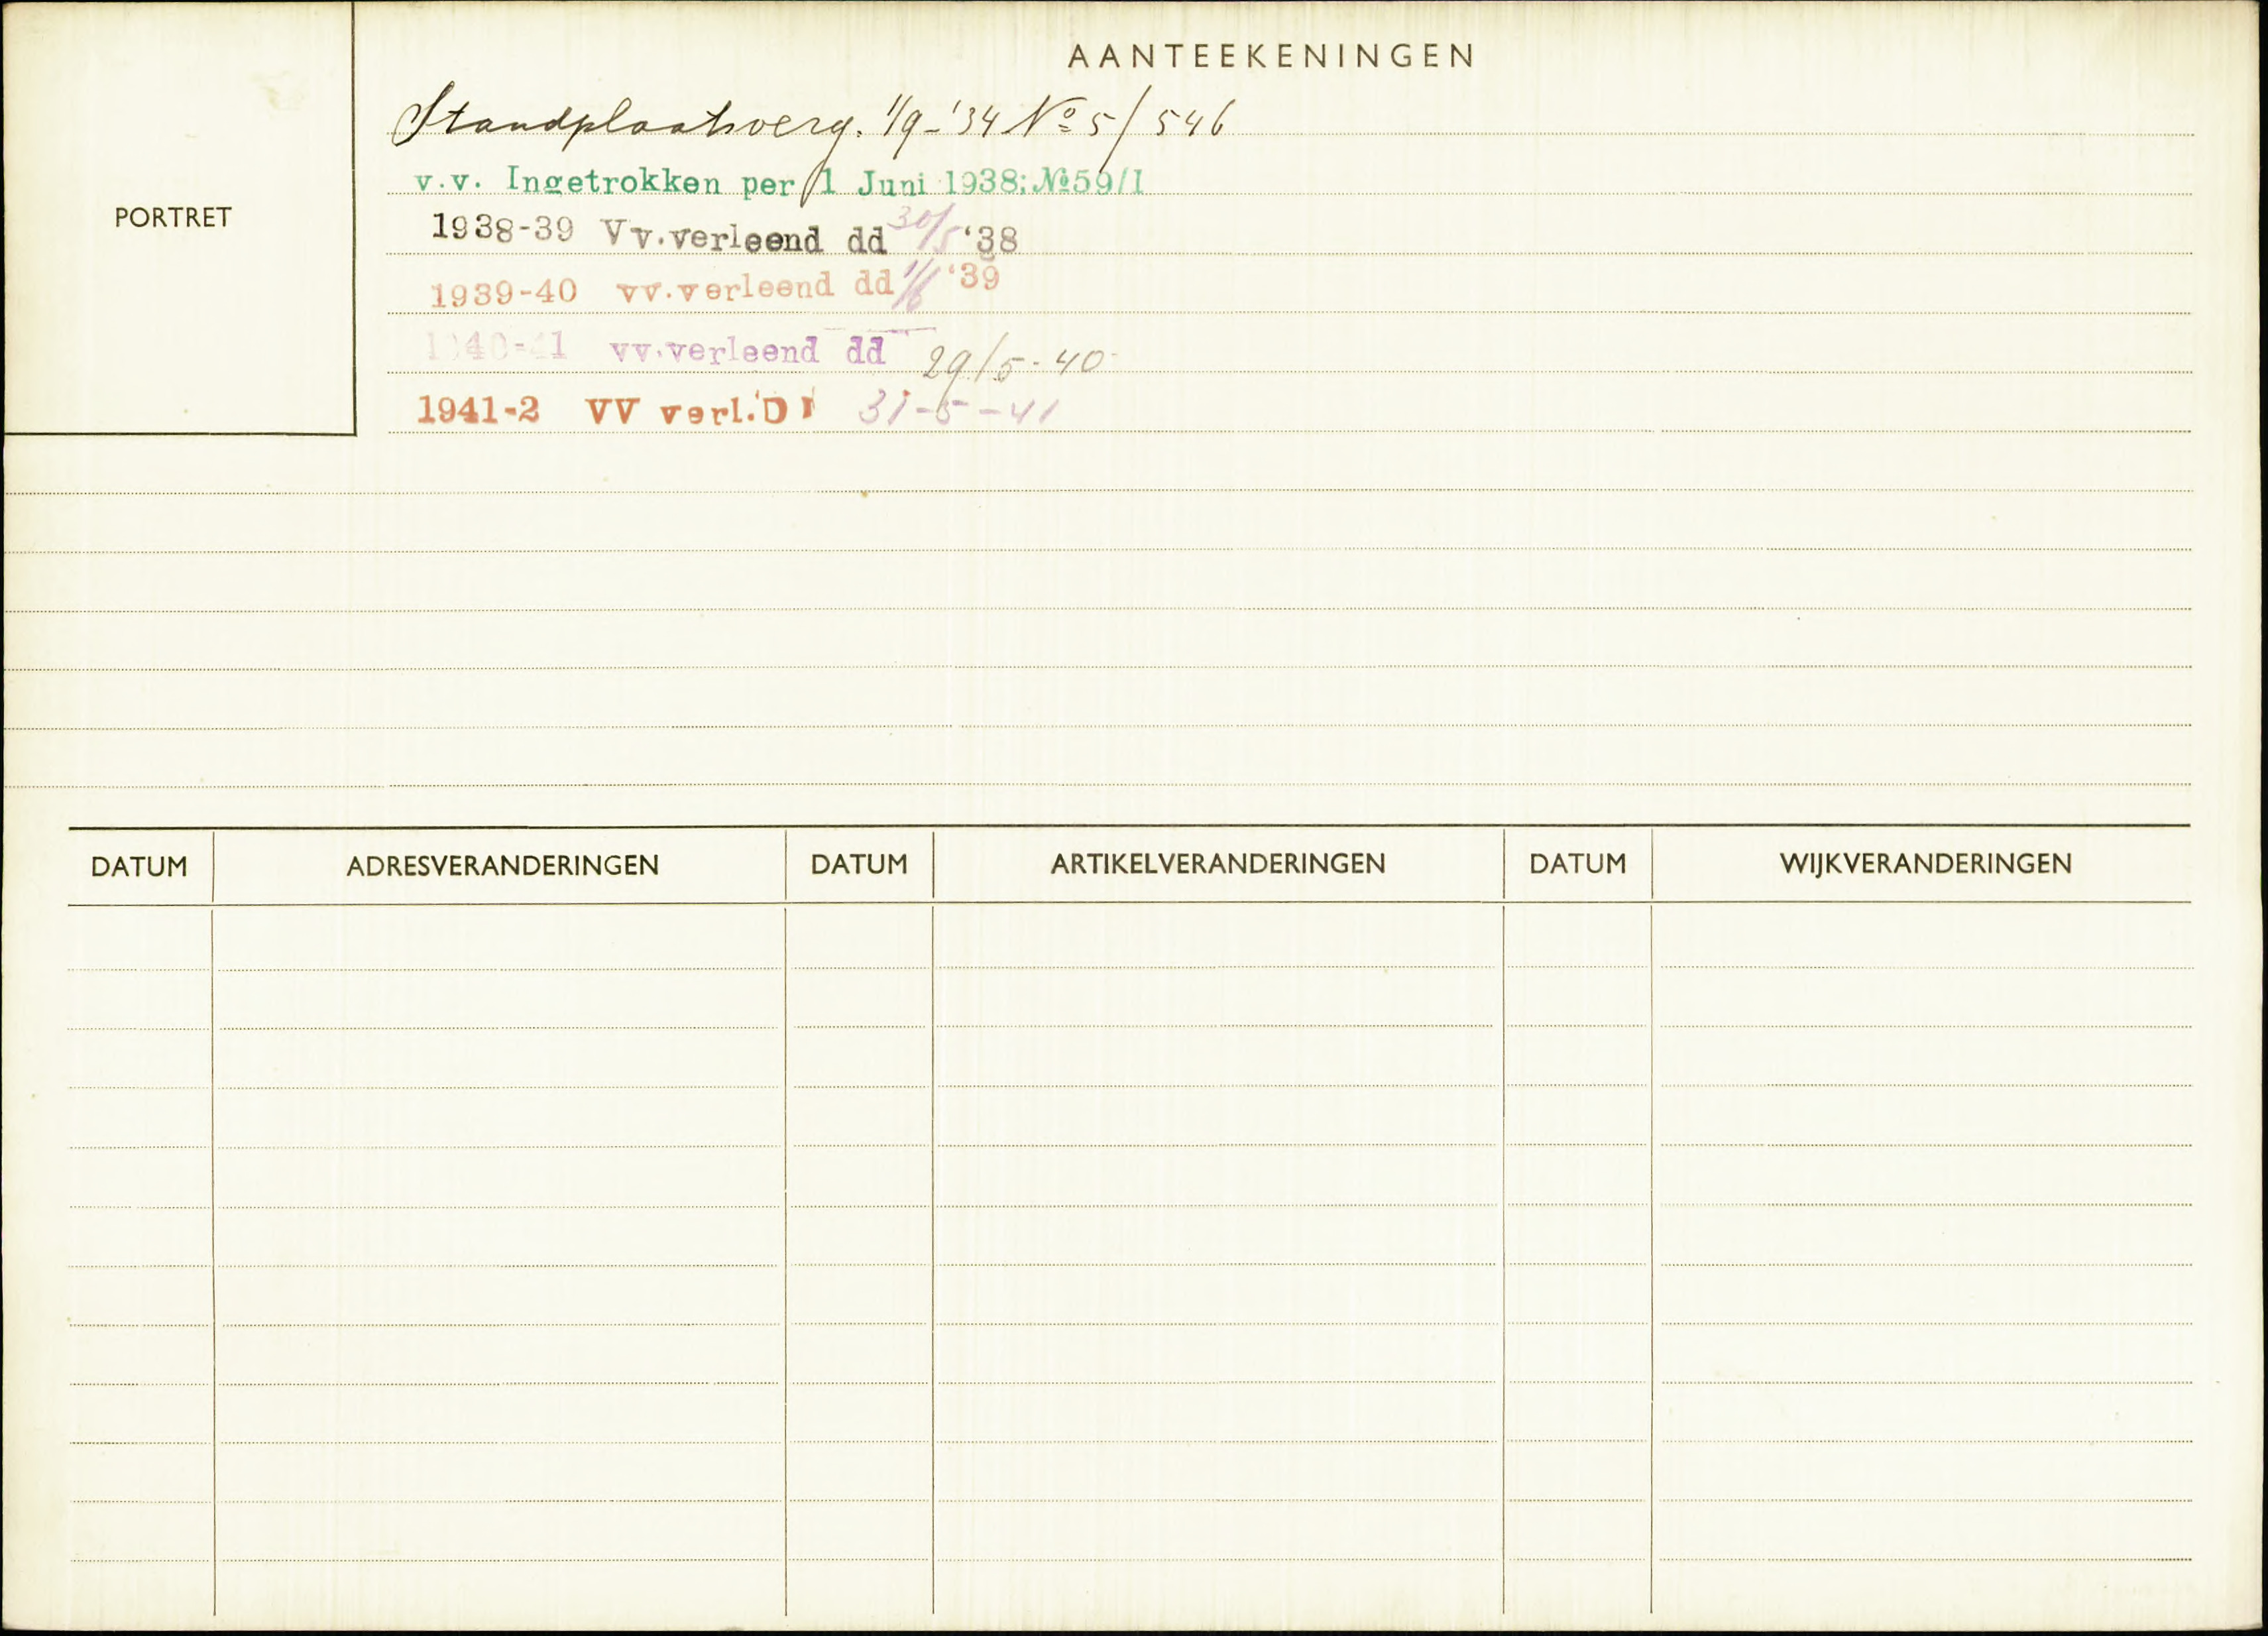 AANTEEKENINGEN
PORTRET
Standplaatsverg. 1/9-'34 Nº 5/546
v.v. Ingetrokken per 1 Juni 1938; Nº 59/1
1938-39 Vv.verleend dd 30/5 '38
1939-40 vv.verleend dd 1/6 '39
1940-41 vv.verleend dd 29/5-40
1941-2 VV verl. D 31-5-41
DATUM ADRESVERANDERINGEN DATUM ARTIKELVERANDERINGEN DATUM WIJKVERANDERINGEN